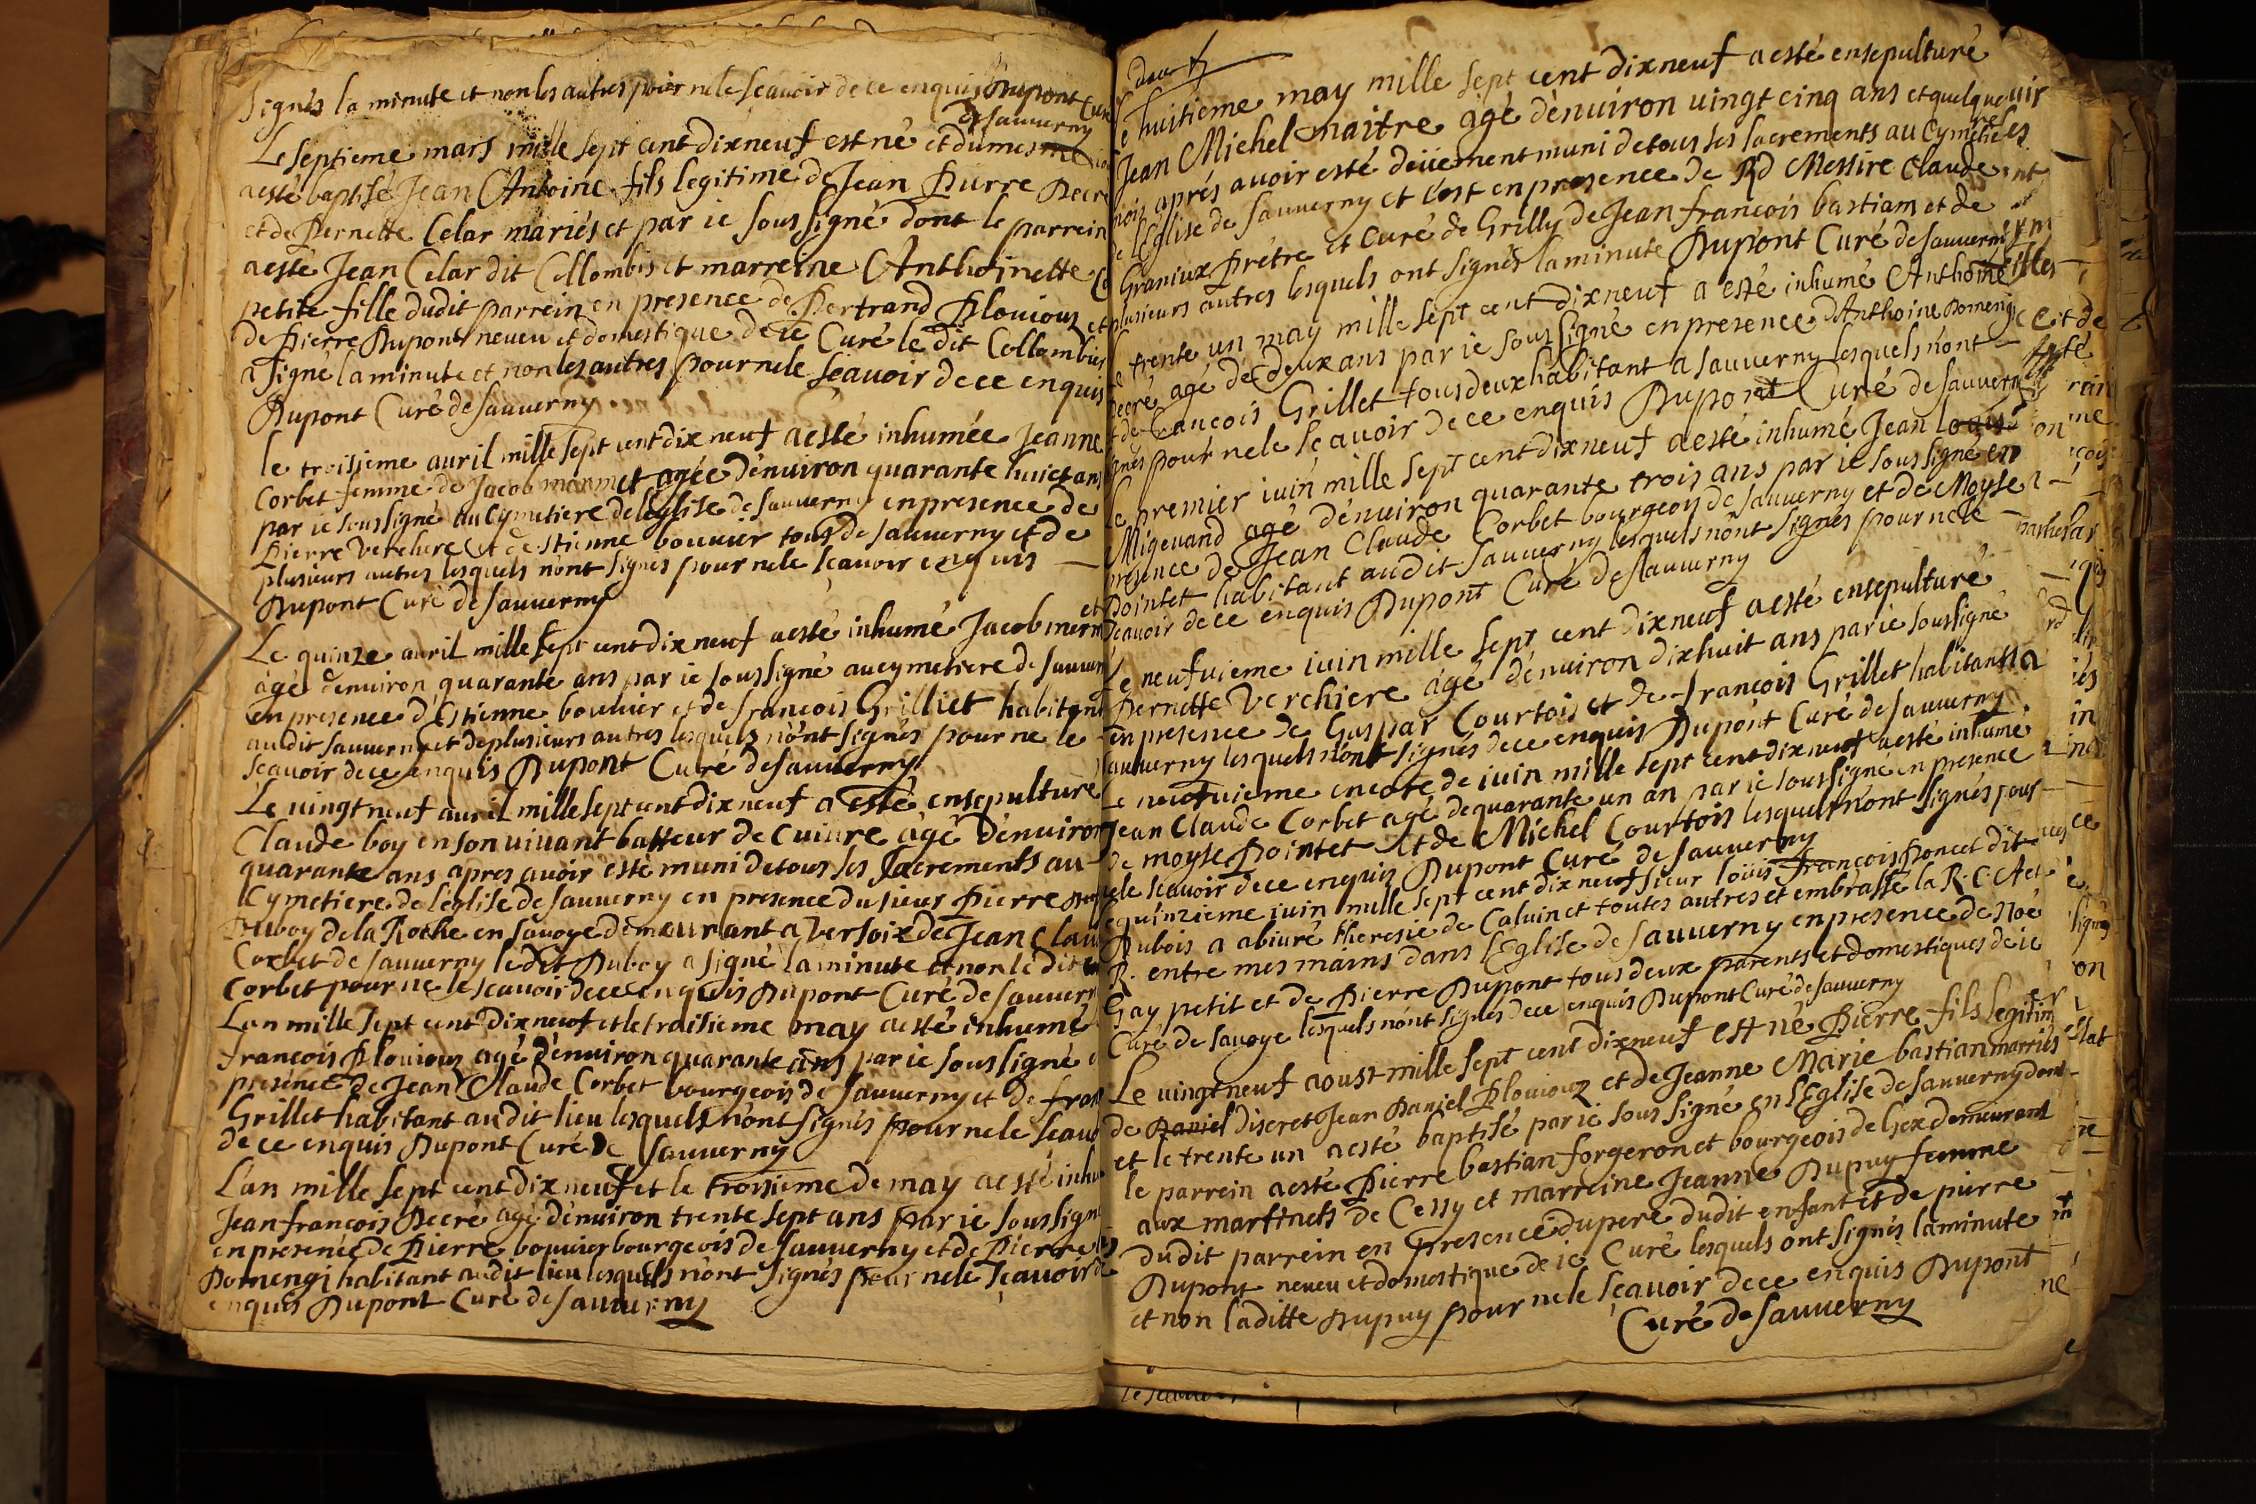 signés la minute et non les autres pour ne le scauoir de ce enquis Dupont Curé
de sauuerny
Le septieme mars mille sept cent dixneuf est né et dumesme
a esté baptisé Jean Antoine fils legitime de Jean Pierre Decré
et de Pernette Celar mariés et par ie sous signé dont le parrein
a esté Jean Celar dit Collombin et marreine Anthoinette
petite fille dudit parrein en presence de Bertrand Plouiouz et
de Pierre Dupont neueu et domestique de ie Curé le dit Collombin
a signé la minute et non les autres pour ne le scauoir de ce enquis
Dupont Curé de sauuerny
le troisieme auril mille sept cent dix neuf a esté inhumée Jeanne
Corbet femme de Jacob mermet agée d'enuiron quarante huict ans
par ie sous signé au Cymetiere de l'eglise de sauuerny en presence de
Pierre Verchere et d'estienne bouuier tous de sauuerny et de
plusieurs autres lesquels n'ont signés pour ne le scauoir enquis
Dupont Curé de sauuerny
Le quinze auril mille sept cent dix neuf a esté inhumé Jacob mermet
agé d'enuiron quarante ans par ie sous signé au cymetiere de sauuerny
en presence d'Estienne bouuier et de françois Grilliet habitant
audit sauuerny et de plusieurs autres lesquels n'ont signés pour ne le
scauoir de ce enquis Dupont Curé de sauuerny
Le uingt neuf auril mille sept cent dix neuf a esté ensepulturé
Claude boy en son uiuant batteur de Cuiure agé d'enuiron
quarante ans apres auoir esté muni de tous les sacrements au
Cymetiere de l'eglise de sauuerny en presence du sieur Pierre
Duboy de la Roche en sauoye demeurant a Versoix de Jean Claude
Corbet de sauuerny le dit Duboy a signé la minute et non le dit
Corbet pour ne le scauoir de ce enquis Dupont Curé de sauuerny
Lan mille sept cent dix neuf et le troisieme may a esté inhumé
françois Plouiouz agé d'enuiron quarante ans par ie sous signé
presence de Jean Claude Corbet bourgeois de sauuerny et de fran
Grillet habitant audit lieu lesquels n'ont signés pour ne le scauoir
de ce enquis Dupont Curé de sauuerny
L'an mille sept cent dix neuf et le troisieme de may a esté inhumé
Jean françois Decré agé d'enuiron trente sept ans par ie sous signé
en presence de Pierre bouuier bourgeois de sauuerny et de Pierre
Domengi habitant audit lieu lesquels n'ont signés pour ne le scauoir de
enquis Dupont Curé de sauuerny
Le huitieme may mille sept cent dixneuf a esté ensepulturé
Jean Michel maitre agé d'enuiron uingt cinq ans et quelque
mois aprés auoir esté deüement muni de tous les sacrements au Cymetiere
de l'Eglise de sauuerny et c'est en presence de Rd Messire Claude
Graniux Prétre et Curé de Grilly de Jean françois bastiam et de
plusieurs autres lesquels ont signés la minute Dupont Curé de sauuerny
Le trente un may mille sept cent dixneuf a esté inhumé Anthoine
Decré agé de deux ans par ie sous signé en presence d'Anthoine Domengi
et de francois Grillet tous deux habitant a sauuerny lesquels n'ont
signés pour ne le sçauoir de ce enquis Dupont Curé de sauuerny
Le premier iuin mille sept cent dixneuf a esté inhumé Jean louis
Migeuand agé d'enuiron quarante trois ans par ie sous signé en
presence de Jean Claude Corbet bourgeois de sauuerny et de Moyse
Pointet habitant audit sauuerny lesquels n'ont signés pour ne le
scauoir de ce enquis Dupont Curé de sauuerny
Le neufuieme iuin mille sept cent dixneuf a esté ensepulturé
Pernette Verchiere agé d'enuiron dixhuit ans par ie soussigné
en presence de Gaspar Courtois et de françois Grillet habitants a
sauuerny lesquels n'ont signés de ce enquis Dupont Curé de sauuerny
Le neufuieme encore de iuin mille sept cent dixneuf a esté inhumé
Jean Claude Corbet agé de quarante un an par ie sous signé en presence
de moyse Pointet et de Michel Courtois lesquels n'ont signés pour
ne le scauoir de ce enquis Dupont Curé de sauuerny
Le quinzieme iuin mille sept cent dix neuf sieur loüis françois Poncet dit
Dubois a abiuré l'heresie de Caluin et toutes autres et embrassé la R. C. A et
R. entre mes mains dans l'Eglise de sauuerny en presence de Noé
Gay petit et de Pierre Dupont tous deux parents et domestiques de ie
Curé de sauoye lesquels n'ont signés de ce enquis Dupont Curé de sauuerny
Le uingt neuf aoust mille sept cent dixneuf est né Pierre fils legitime
de Daniel discret Jean Daniel Plouiouz et de Jeanne Marie bastian marriés
et le trente un a esté baptisé par ie sous signé en l'Eglise de sauuerny dont
le parrein a esté Pierre bastian forgeron et bourgeois de Gex demeurant
aux martinets de Cessy et marreine Jeanne Dupuy femme
dudit parrein en presence du pere dudit enfant et de pierre
Dupont neueu et domestique de ie Curé lesquels ont signés la minute
et non laditte Dupuy pour ne le sçauoir de ce enquis Dupont
Curé de sauuerny